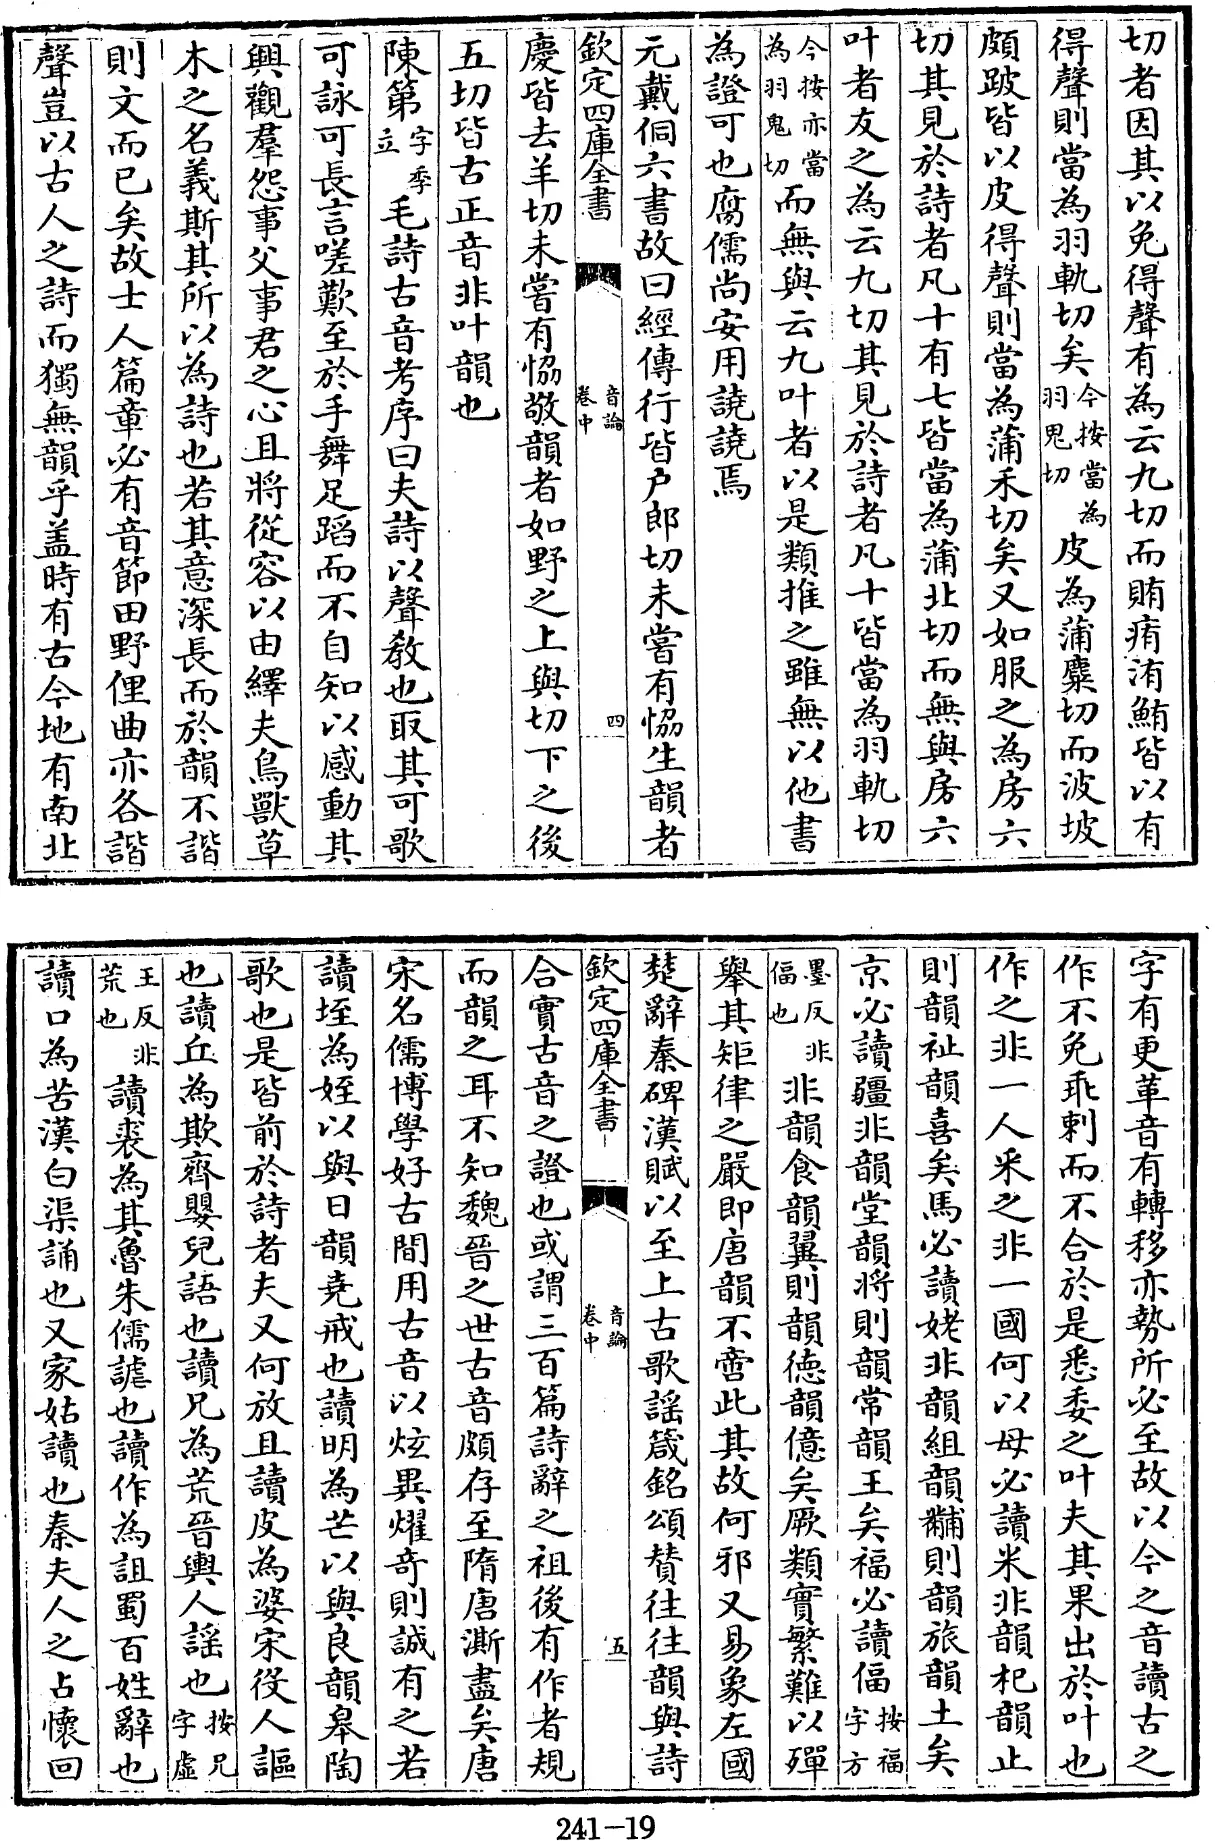 切者因其以免得聲有為云九切而賄痏洧鮪皆以有
得聲則當為羽軌切矣今按當為羽鬼切皮為蒲麋切而波坡
頗跛皆以皮得聲則當為蒲禾切矣又如服之為房六
切其見於詩者凡十有七皆當為蒲北切而無與房六
叶者友之為云九切其見於詩者凡十皆當為羽軌切
今按亦當為羽鬼切而無與云九叶者以是類推之雖無以他書
為證可也腐儒尚安用譊譊焉
元戴侗六書故曰經傳行皆户郎切未嘗有恊生韻者
欽定四庫全書
音論
卷中
四
慶皆去羊切未嘗有恊敬韻者如野之上與切下之後
五切皆古正音非叶韻也
陳第字季立毛詩古音考序曰夫詩以聲教也取其可歌
可詠可長言嗟歎至於手舞足蹈而不自知以感動其
興觀羣怨事父事君之心且將從容以由繹夫鳥獸草
木之名義斯其所以為詩也若其意深長而於韻不諧
則文而已矣故士人篇章必有音節田野俚曲亦各諧
聲豈以古人之詩而獨無韻乎盖時有古今地有南北
字有更革音有轉移亦勢所必至故以今之音讀古之
作不免乖剌而不合於是悉委之叶夫其果出於叶也
作之非一人采之非一國何以母必讀米非韻杞韻止
則韻祉韻喜矣馬必讀姥非韻組韻黼則韻旅韻土矣
京必讀疆非韻堂韻將則韻常韻王矣福必讀偪按福字方
墨反非偪也非韻食韻翼則韻德韻億矣厥類實繁難以殫
舉其矩律之嚴即唐韻不啻此其故何邪又易象左國
楚辭秦碑漢賦以至上古歌謡箴銘頌贊往往韻與詩
欽定四庫全書
音論
卷中
五
合實古音之證也或謂三百篇詩辭之祖後有作者規
而韻之耳不知魏晉之世古音頗存至隋唐澌盡矣唐
宋名儒博學好古間用古音以炫異耀奇則誠有之若
讀垤為姪以與日韻堯戒也讀明為芒以與良韻皋陶
歌也是皆前於詩者夫又何放且讀皮為婆宋役人謳
也讀丘為欺齊嬰兒語也讀兄為荒晉輿人謡也按兄字虛
王反非荒也讀裘為其魯朱儒謔也讀作為詛蜀百姓辭也
讀口為苦漢白渠誦也又家姑讀也秦夫人之占懷回
241-19